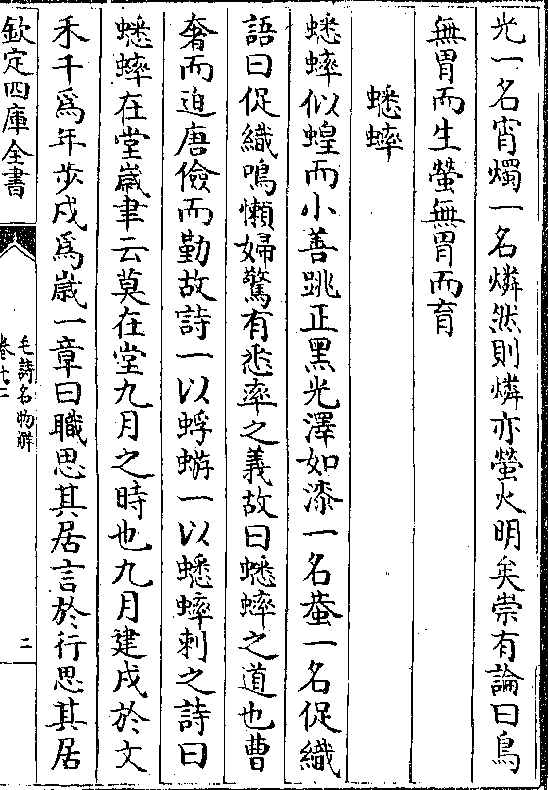 光一名宵燭一名燐然則燐亦螢火明矣崇有論曰鳥
無胃而生螢無胃而育
蟋蟀
蟋蟀似蝗而小善跳正黑光澤如漆一名蛬一名促織
語曰促織鳴懶婦驚有悉率之義故曰蟋蟀之道也曹
奢而迫唐儉而勤故詩一以蜉蝣一以蟋蟀刺之詩曰
蟋蟀在堂嵗聿云莫在堂九月之時也九月建戌於文
禾千為年步戌為嵗一章曰職思其居言於行思其居
欽定四庫全書
毛詩名物解
卷十二
二